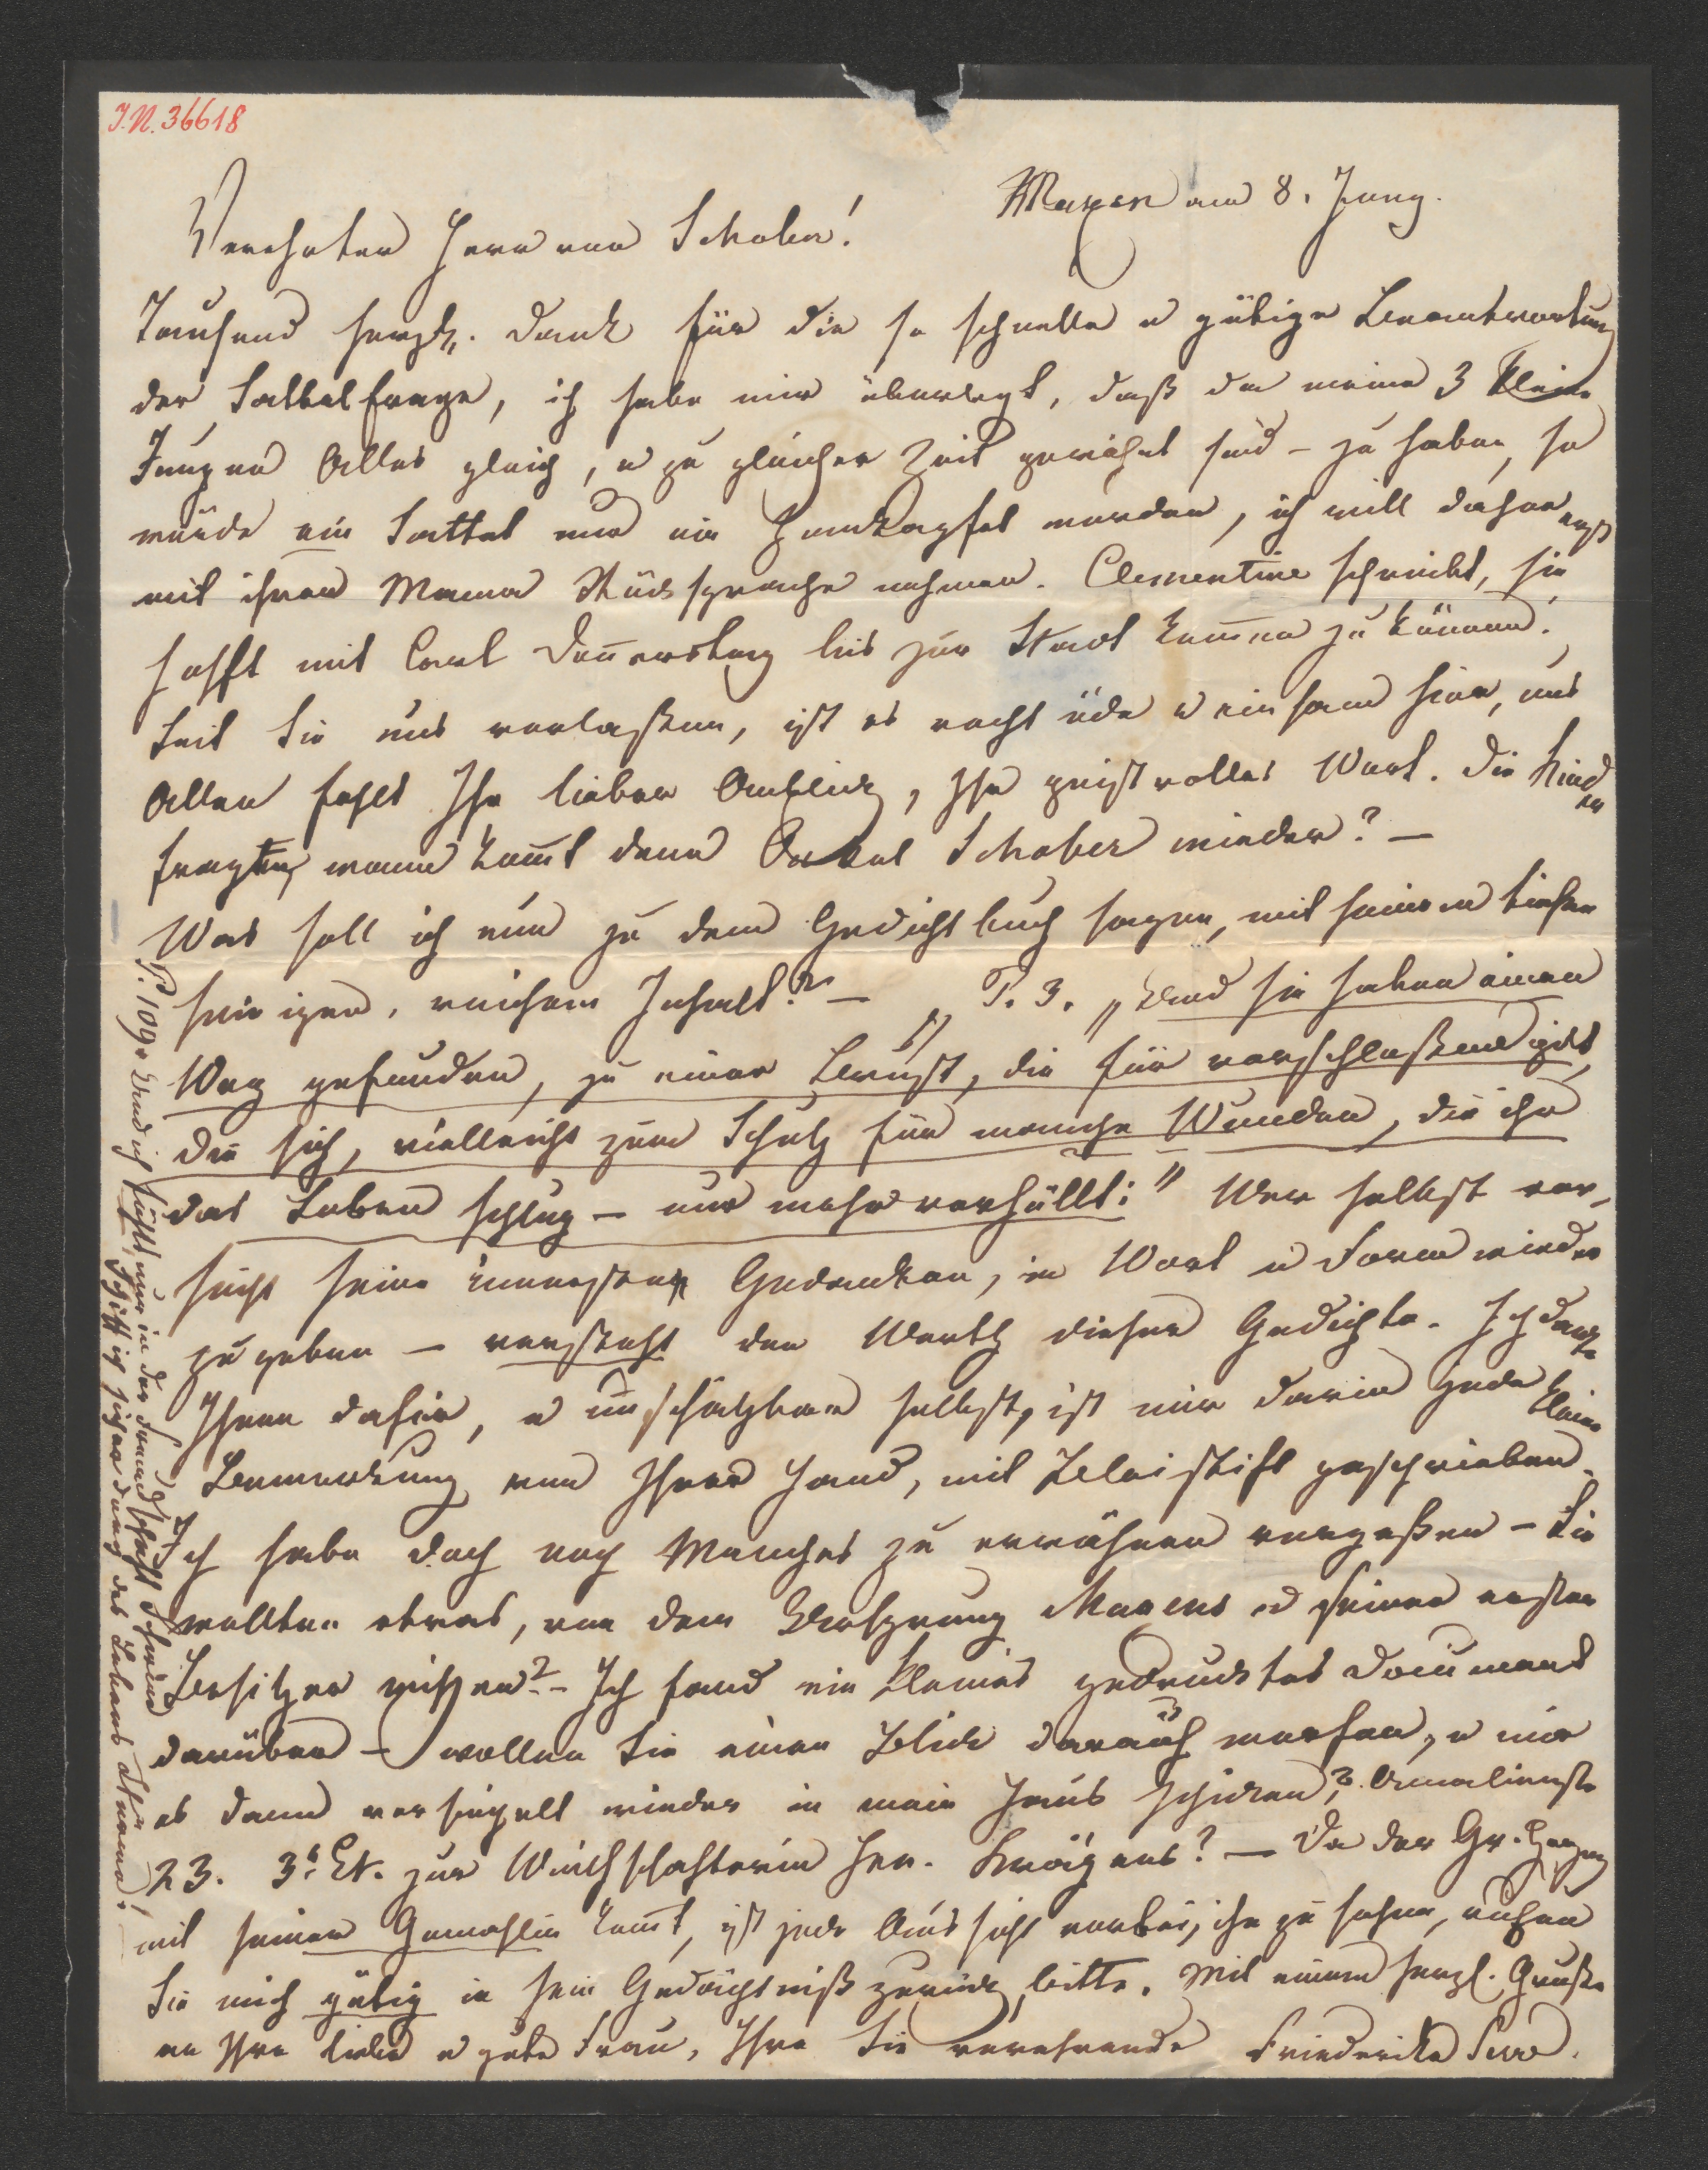 J.N. 36618
Maxen am 8. Juny.
Verehrter Herr von Schober!
Tausend herzl. Dank für die so schnelle u gütige Beantwortung
der Sattelfrage, ich habe mir überlegt, daß da meine 3 kleine
Jungen Alles gleich, u zu gleicher Zeit gewöhnt sind – zu haben, so
würde ein Sattel nur ein Zankapfel werden, ich will daher erst
mit ihrer Mama Rücksprache nehmen. Clementine schreibt, sie
hofft mit Carl Donnerstag bis zur Stadt kom̄en zu können.
Seit Sie uns verlaßen, ist es recht öde u einsam hier, uns
Allen fehlt Ihr lieber Anblick, Ihr geistvolles Wort. Die Kinder
fragten, wann kom̄t denn Onkel Schober wieder? —
Was soll ich nun zu dem Gedichtbuch sagen, mit seinem tiefen
sinnigen, reichem Inhalt? — P. 3. „Und sie haben einen
Weg gefunden, zu einer Brust, die für verschloßen gilt,
die sich, vielleicht zum Schutz für manche Wunden, die ihr
das Leben schlug – nur mehr verhüllt:" Wer selbst ver-
sucht seine innersten Gedanken, in Wort u Form wieder
zu geben – versteht den Werth dieser Gedichte. Ich danke
Ihnen dafür, u unschätzbar selbst, ist mir darin jede kleine
Bemerkung von Ihrer Hand, mit Bleistift geschrieben.
Ich habe doch noch Manches zu erwähnen vergeßen – Sie
wollten etwas, von dem Ursprung Maxens u seiner ersten
Besitzer wißen? – Ich fand ein kleines gedrucktes Document
darüber – wollen Sie einen Blick darauf werfen, u mir
es dann versiegelt wieder in mein Haus schicken? Amalienstr
23. 3te Et. zur Wirthschafterin Frl. Krögens? — Da der Gr. Herzog
mit seiner Gemahlin kom̄t, ist jede Aussicht vorbei, ihn zu sehen, rufen
Sie mich gütig in sein Gedächtniß zurück, bitte. Mit einem herzl. Gruße
an Ihre liebe u gute Frau, Ihre Sie verehrende Friederike Serre.
P. 109. Und ich fühlt, nur in der Freundschaft Schein
Schifft ich sicher durch des Lebens Sturm!